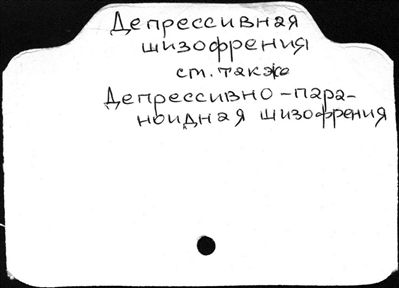 Депрессивная
шизофрения
см. также
Депрессивно-пара-
ноидная шизофрения